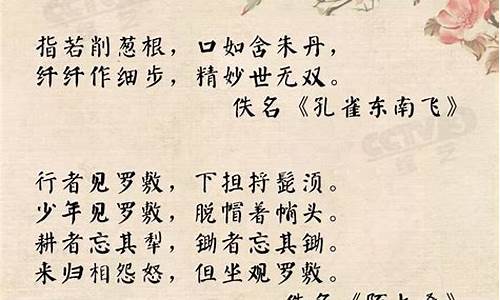 指若削葱根，口如舍朱丹，
纤纤作细步，精妙世无双。
佚名《孔雀东南飞》
行者见罗敷，下担捋髭须。
少年见罗敷，脱帽着帩头。
耕者忘其犁，锄者忘其锄。
来归相怨怒，但坐观罗敷。
佚名《陌上桑》